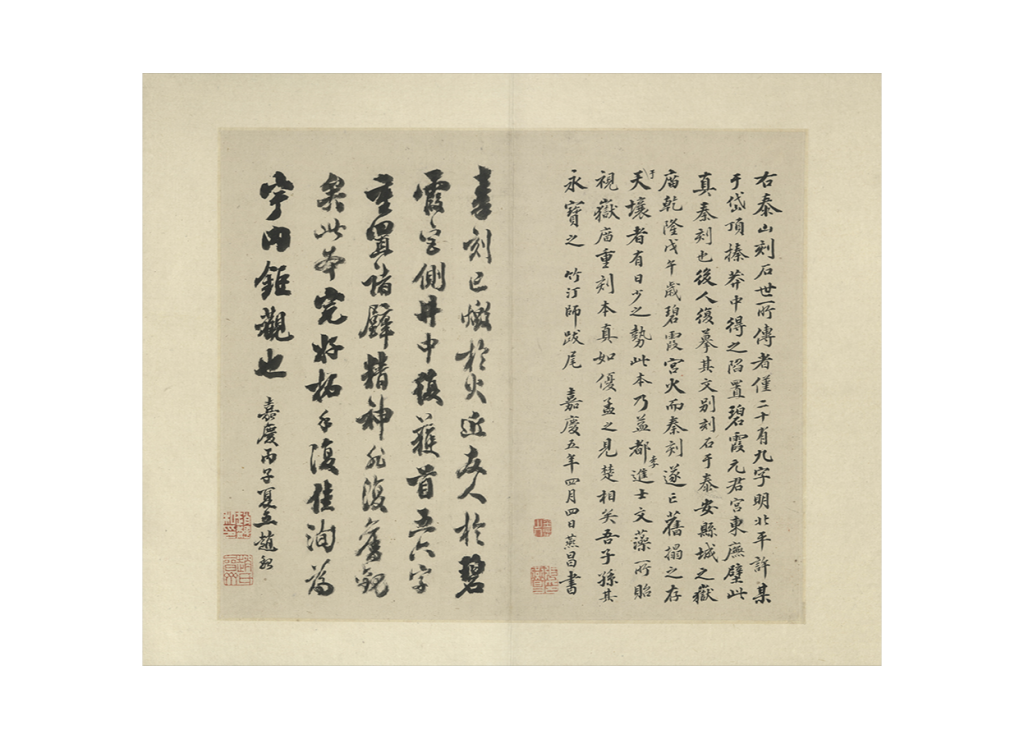 右秦山刻石世所傳者僅二十有九字明北平許某
于岱頂榛莽中得之陷置碧霞元君宮東廡壁此
真秦刻也後人復摹其文別刻石于泰安縣城之嶽
廟乾隆戊午歲碧霞宮火而秦刻遂亡舊搨之存
于天壤者有日少之勢此本乃益都李進士文藻所貽
視嶽廟重刻本真如優孟之見楚相矣吾子孫其
永寶之 竹汀師跋尾 嘉慶五年四月四日燕昌書
秦刻已燬於火近友人於碧
霞宮側井中復獲首五六字
重置諸壁精神非復舊觀
矣此本完好拓手復佳洵為
宇內鉅觀也 嘉慶丙子夏五趙